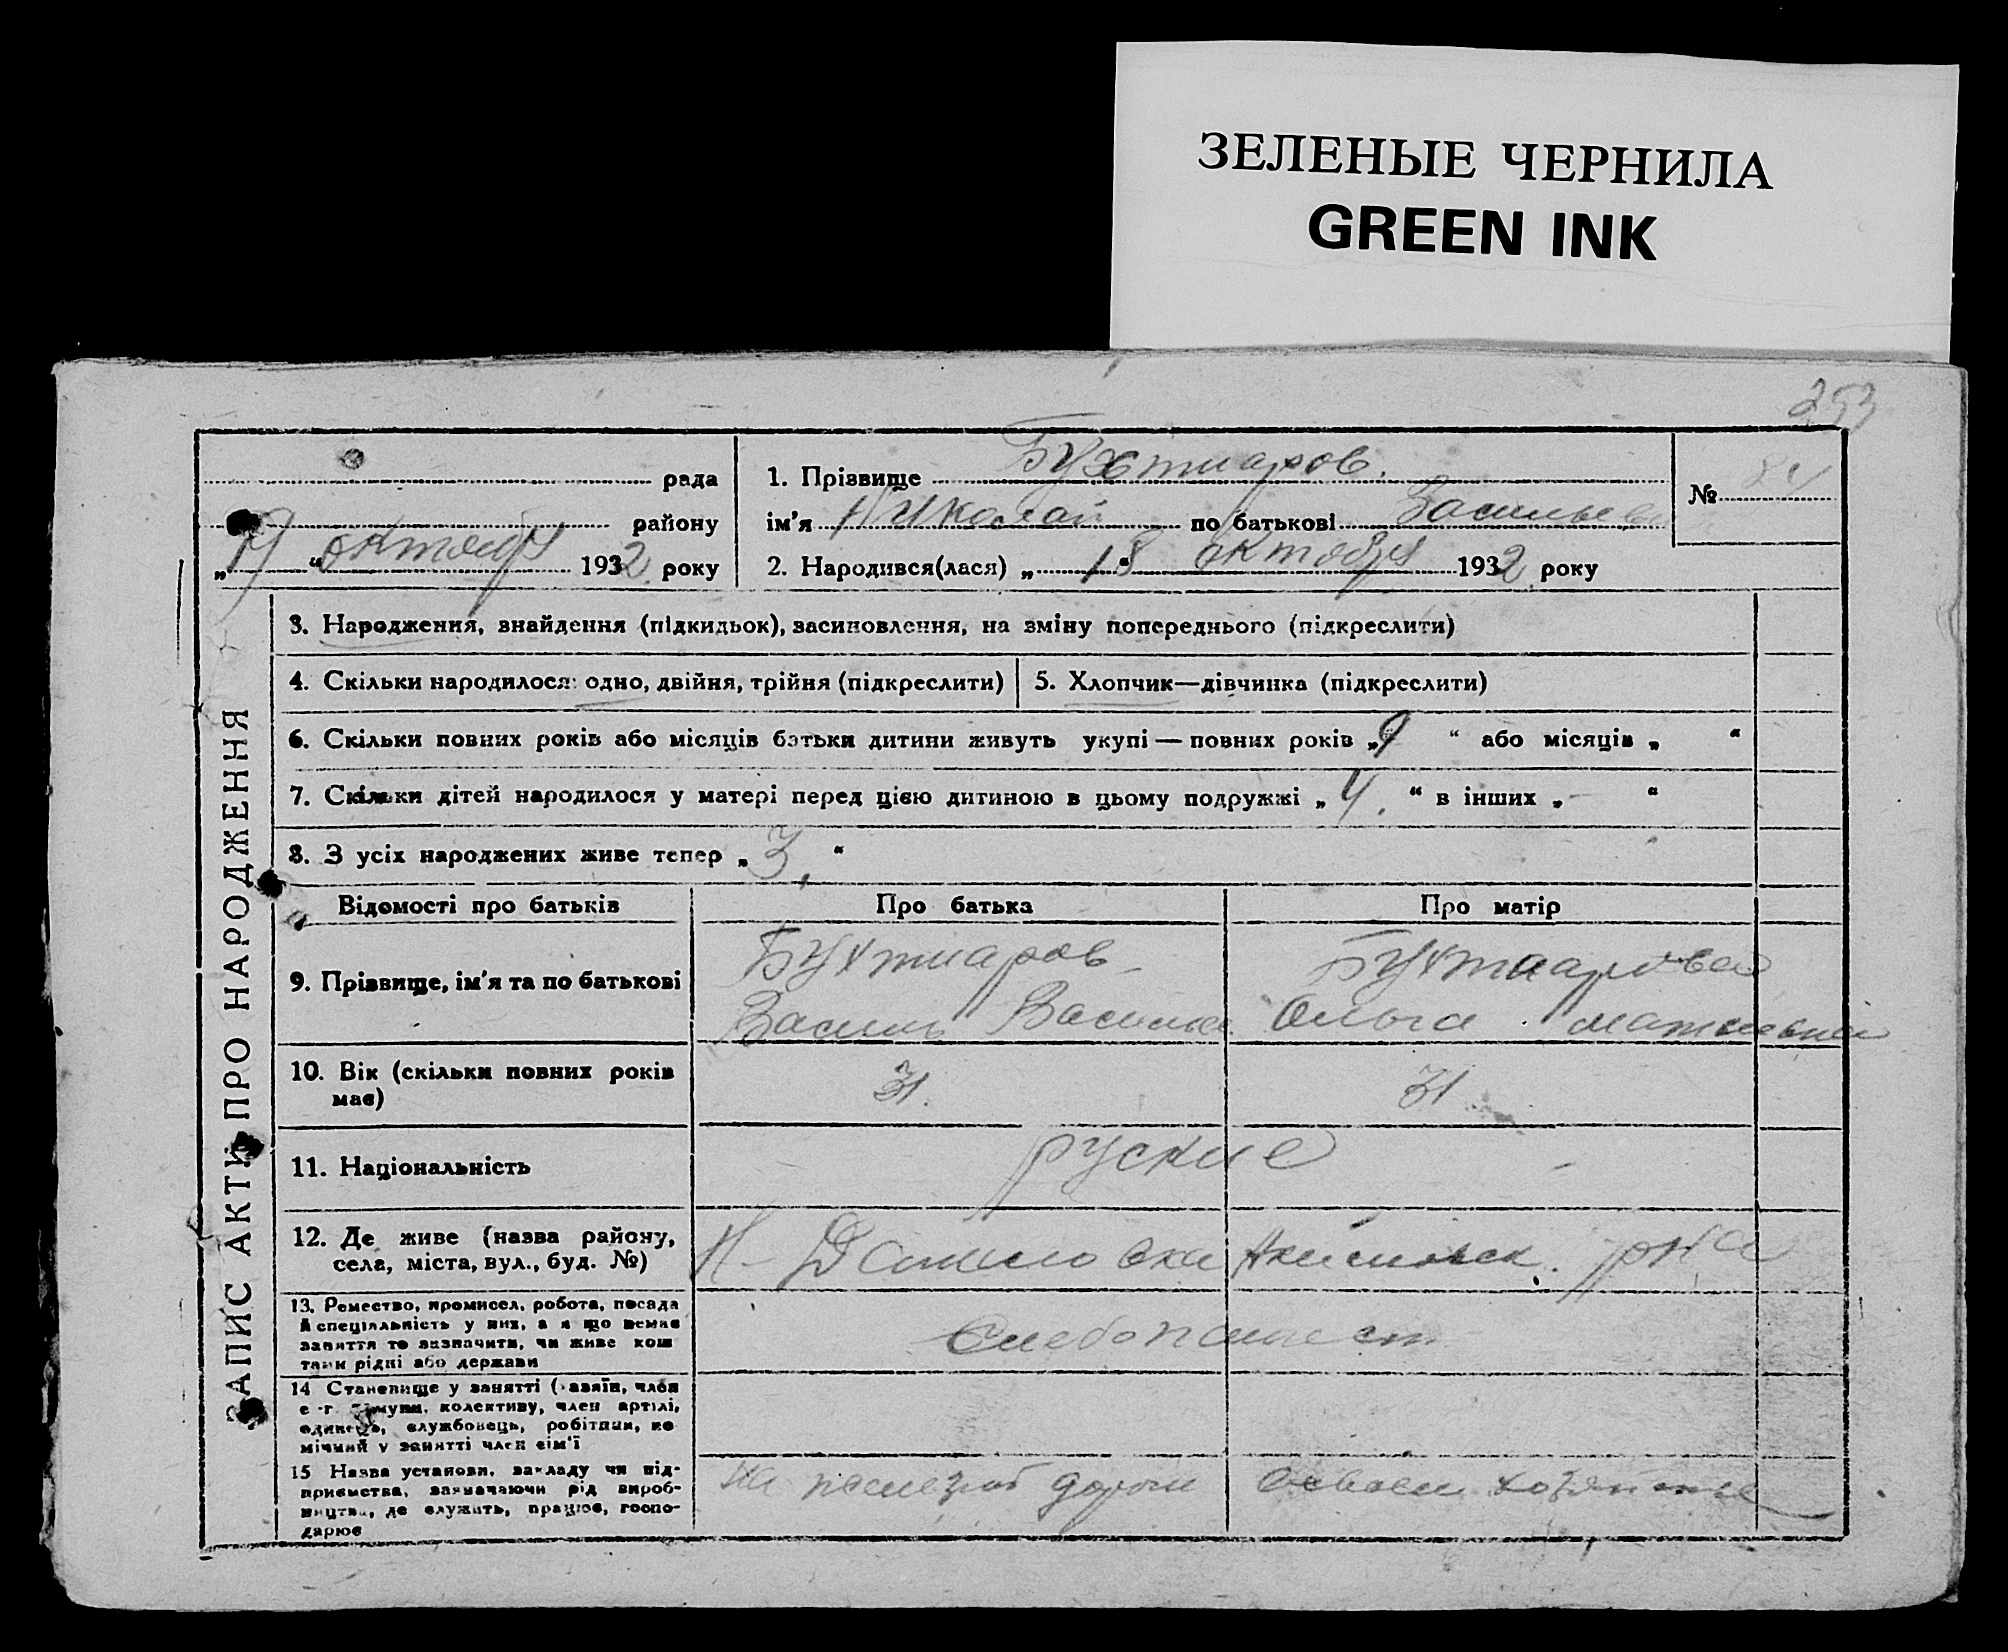 ЗЕЛЕНЫЕ ЧЕРНИЛА
GREEN INK
253
рада
району
„19“ октября 1932 року
1. Прізвище Бухтиаров.
ім'я Николай по батькові Васильев
№ 24
2. Народився(лася) „18 октября 1932 року
ЗАПИС АКТИ ПРО НАРОДЖЕННЯ
3. Народження, знайдення (підкидьок), засиновлення, на зміну попереднього (підкреслити)
4. Скільки народилося: одно, двійня, трійня (підкреслити)
5. Хлопчик—дівчинка (підкреслити)
6. Скільки повних років або місяців батьки дитини живуть укупі — повних років „9“ або місяців „ “
7. Скільки дітей народилося у матері перед цією дитиною в цьому подружжі „4.“ в інших „ - “
8. З усіх народжених живе тепер „3.“
Відомості про батьків
Про батька
Про матір
9. Прізвище, ім'я та по батькові
Бухтиаров
Василь Васильев.
Бухтиарова
Ольга матвеевна
10. Вік (скільки повних років
має)
31.
31
11. Національність
руские
12. Де живе (назва району,
села, міста, вул., буд. №)
Н-Даниловка Акимовск. р-на
13. Ремество, промисел, робота, посада
й спеціяльність у них, а як що немає
заняття то визначити, чи живе кош
тами рідні або держави
14 Становище у занятті (хазяїн, член
с.-г. комуни, колективу, член артілі,
одинець, службовець, робітник, по
мічний у занятті член сім'ї
15 Назва установи, закладу чи під-
приємства, зазначаючи рід вироб-
ництва, де служить, працює, госпо-
дарює
На железной дороги